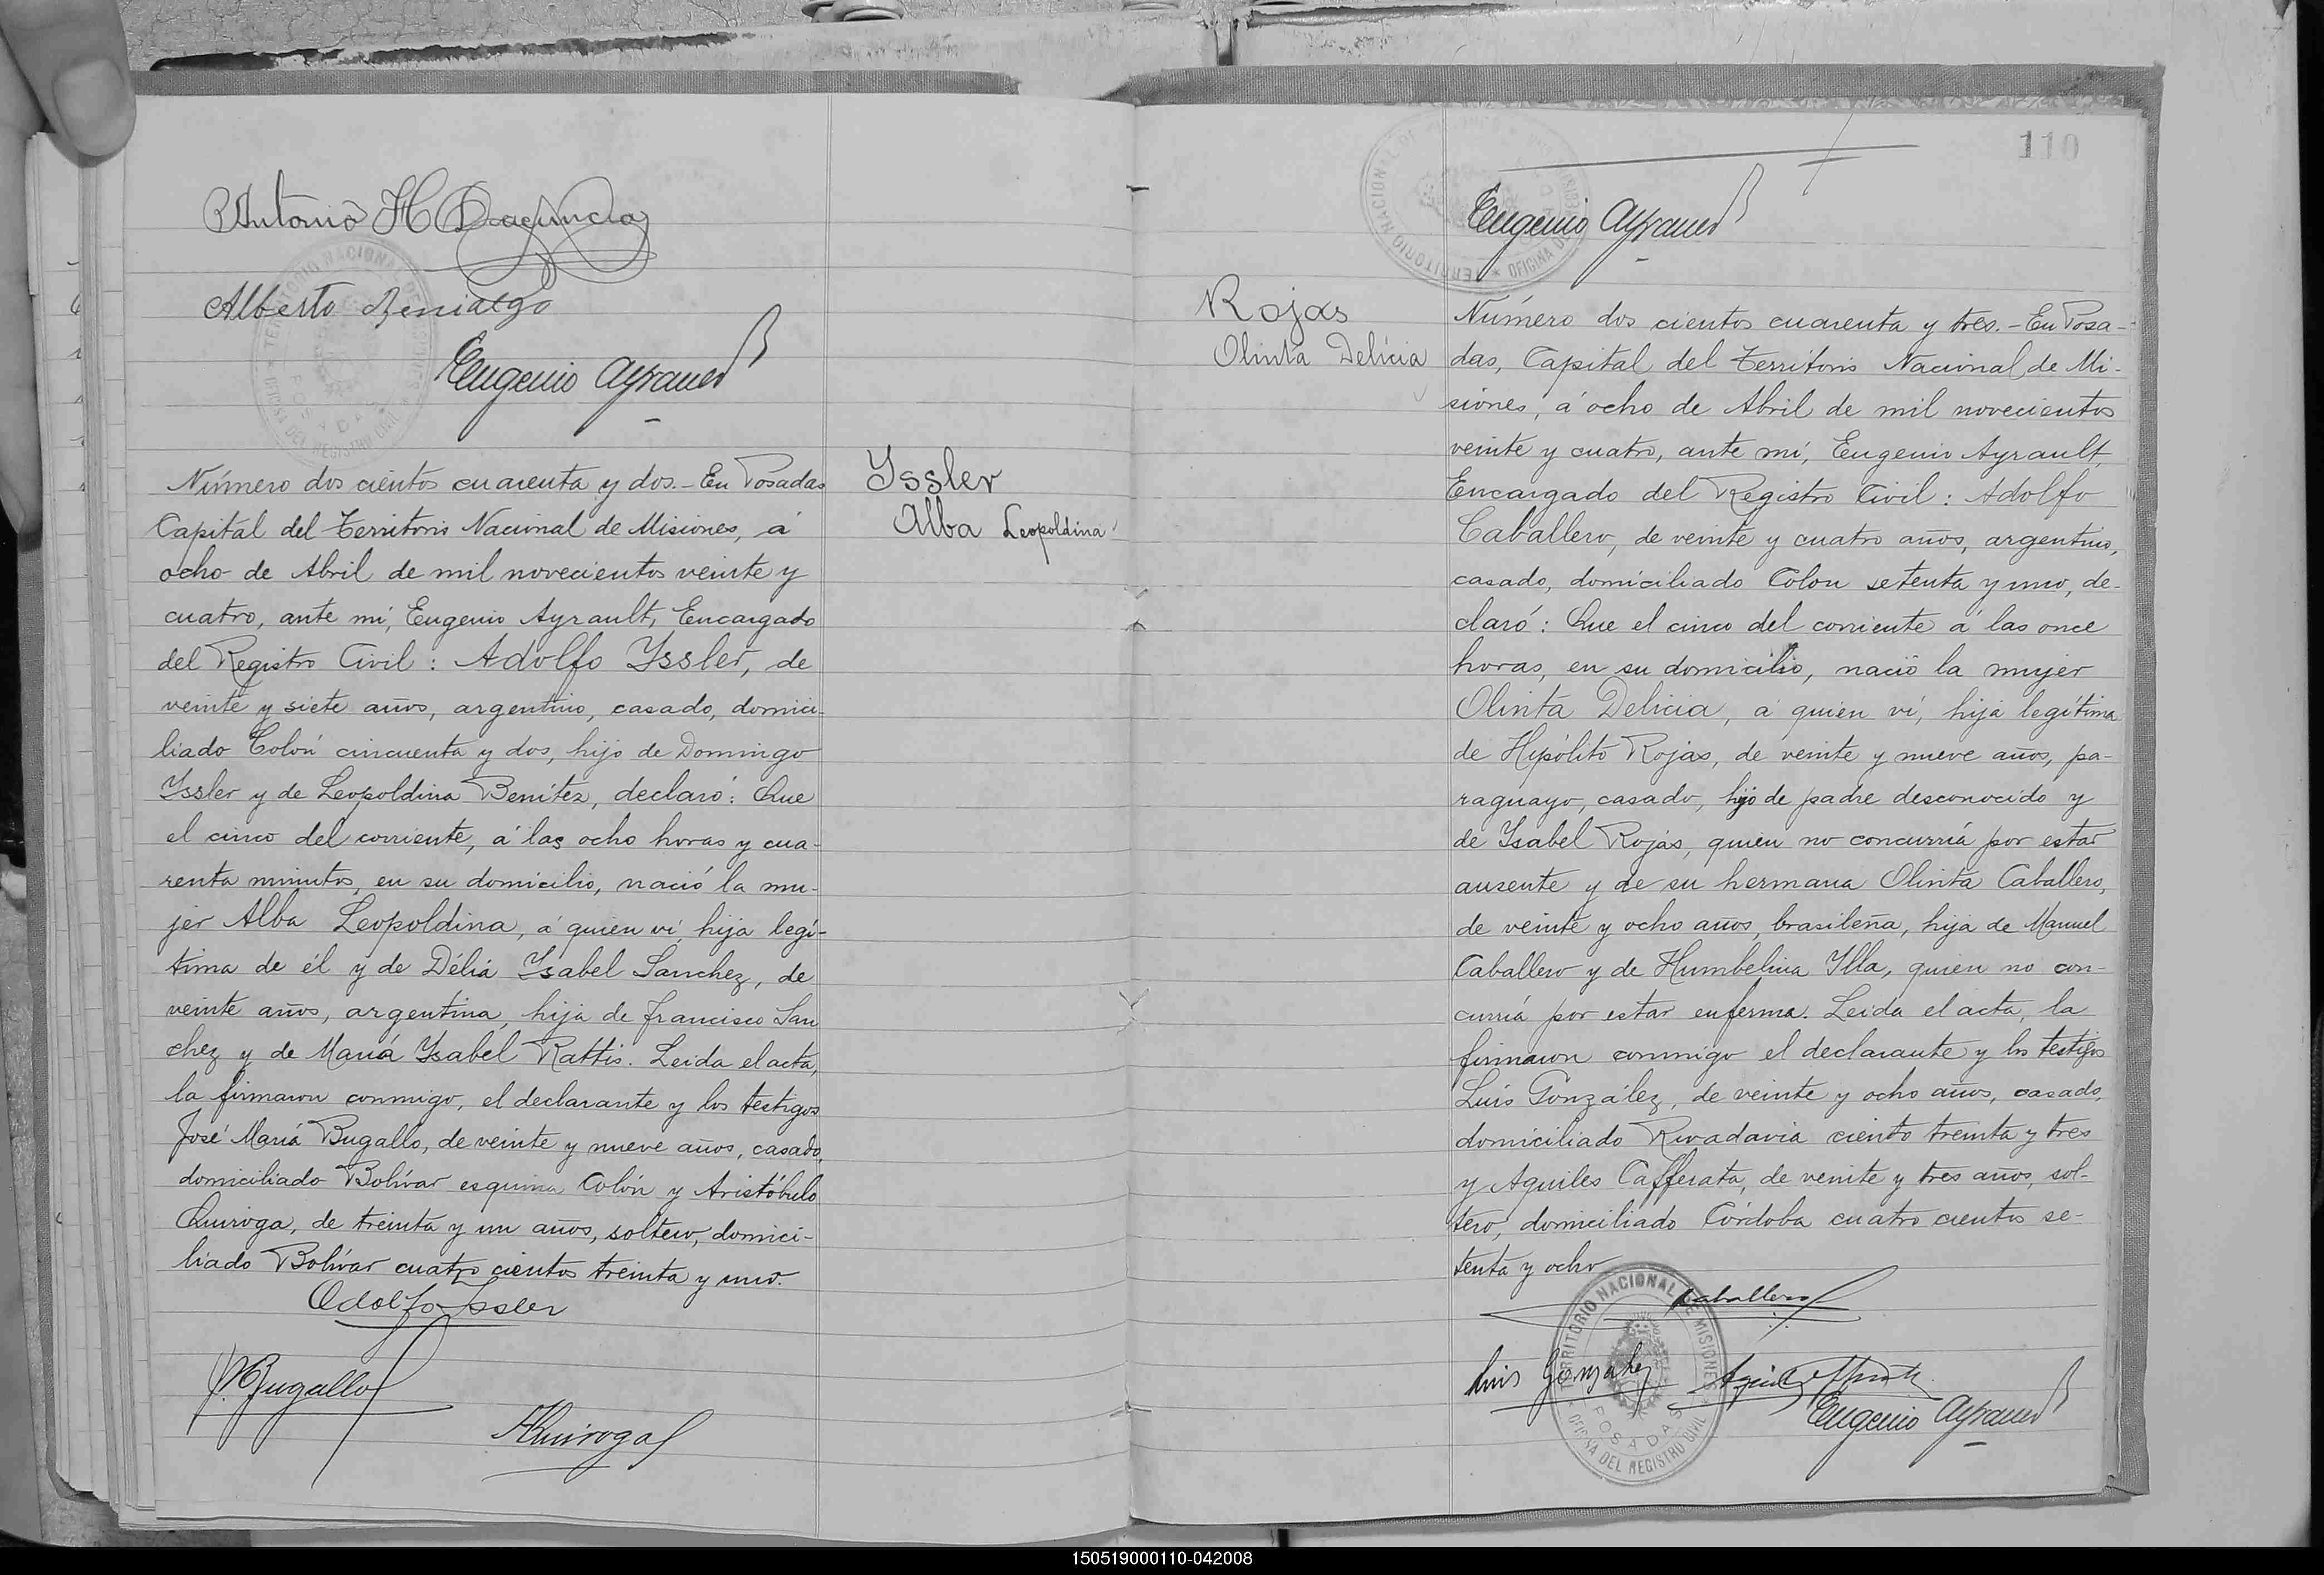 Antonio H
Alberto Benialgo
Eugenio Ayrault
Número dos cientos cuarenta y dos.- En Posadas
Capital del Territorio Nacional de Misiones, á
ocho de Abril de mil novecientos veinte y
cuatro, ante mí, Eugenio Ayrault, Encargado
del Registro Civil: Adolfo Yssler, de
veinte y siete años, argentino, casado, domici-
liado Colón cincuenta y dos, hijo de Domingo
Yssler y de Leopoldina Benítez, declaró: Que
el cinco del corriente, á las ocho horas y cua-
renta minutos, en su domicilio, nació la mu-
jer Alba Leopoldina, á quien ví, hija legí-
tima de él y de Délia Ysabel Sanchez, de
veinte años, argentina, hija de Francisco San
chez y de María Ysabel Rattis. Leida el acta,
la firmaron conmigo, el declarante y los testigos
José María Bugallo, de veinte y nueve años, casado,
domiciliado Bolívar esquina Colón y Aristóbulo
Quiroga, de treinta y un años, soltero, domici-
liado Bolívar cuatro cientos treinta y uno.
Adolfo Issler
Bugallo
AQuiroga
Yssler
Alba Leopoldina
110
TERRITORIO NACIONAL DE MISIONES
OFICINA DEL REGISTRO CIVIL
Eugenio Ayrault
Rojas
Olinta Delicia
Número dos cientos cuarenta y tres.- En Posa-
das, Capital del Territorio Nacional de Mi-
siones, á ocho de Abril de mil novecientos
veinte y cuatro, ante mí, Eugenio Ayrault,
Encargado del Registro Civil: Adolfo
Caballero, de veinte y cuatro años, argentino,
casado, domiciliado Colon setenta y uno, de-
claró: Que el cinco del corriente á las once
horas, en su domicilio, nació la mujer
Olinta Delicia, á quien ví, hija legítima
de Hipólito Rojas, de veinte y nueve años, pa-
raguayo, casado, hijo de padre desconocido y
de Ysabel Rojas, quien no concurría por estar
ausente y de su hermana Olinta Caballero,
de veinte y ocho años, brasileña, hija de Manuel
Caballero y de Humbelina Ylla, quien no con-
curría por estar enferma. Leida el acta, la
firmaron conmigo el declarante y los testigos
Luís González, de veinte y ocho años, casado,
domiciliado Rivadavia ciento treinta y tres
y Aquiles Cafferata, de veinte y tres años, sol-
tero, domiciliado Córdoba cuatro cientos se-
tenta y ocho
Caballero
TERRITORIO NACIONAL DE MISIONES
POSADAS
OFICINA DEL REGISTRO CIVIL
Luis Gonzalez
Eugenio Ayrault
150519000110-042008